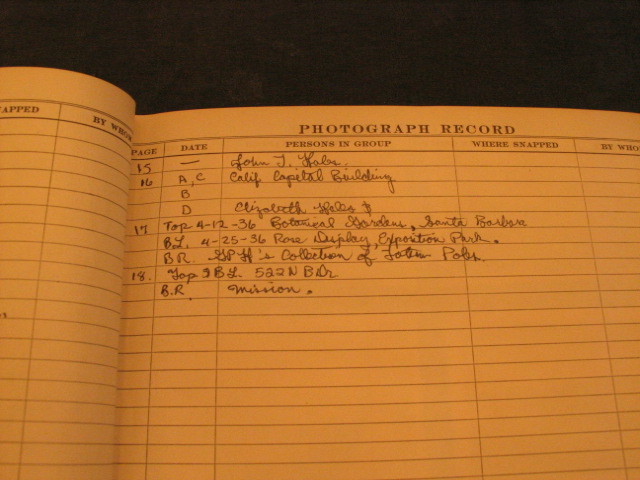 APPED
BY WHOM
PHOTOGRAPH RECORD
PAGE DATE PERSONS IN GROUP WHERE SNAPPED BY WHO
15 — John T.
16 A, C Calif Capital Building
B
D Elizabeth &
17 Top 4-12-36 Botanical Gardens, Santa Barbara
B.L. 4-25-36 Rose Display, Exposition Park.
B.R. 's Collection of Totem Poles.
18. Top & B.L. 522 N B Dr
B.R. Mission.